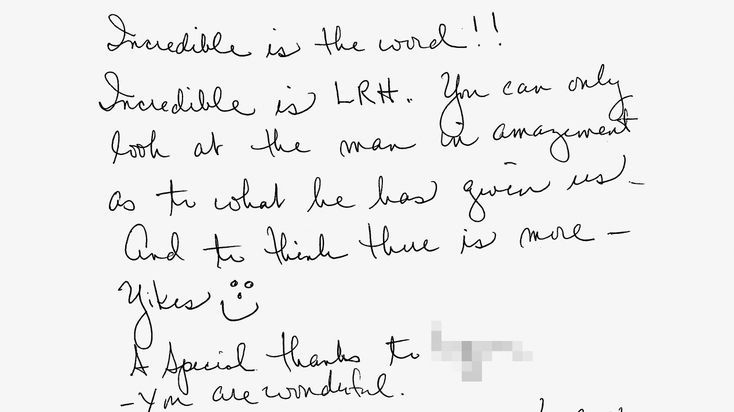 Incredible is the word!!
Incredible is LRH. You can only
look at the man in amazement
as to what he has given us -
And to think there is more -
Yikes
A Special thanks to
- You are wonderful.